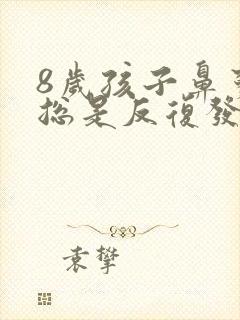 8歲孩子鼻
總是反復發
袁攀